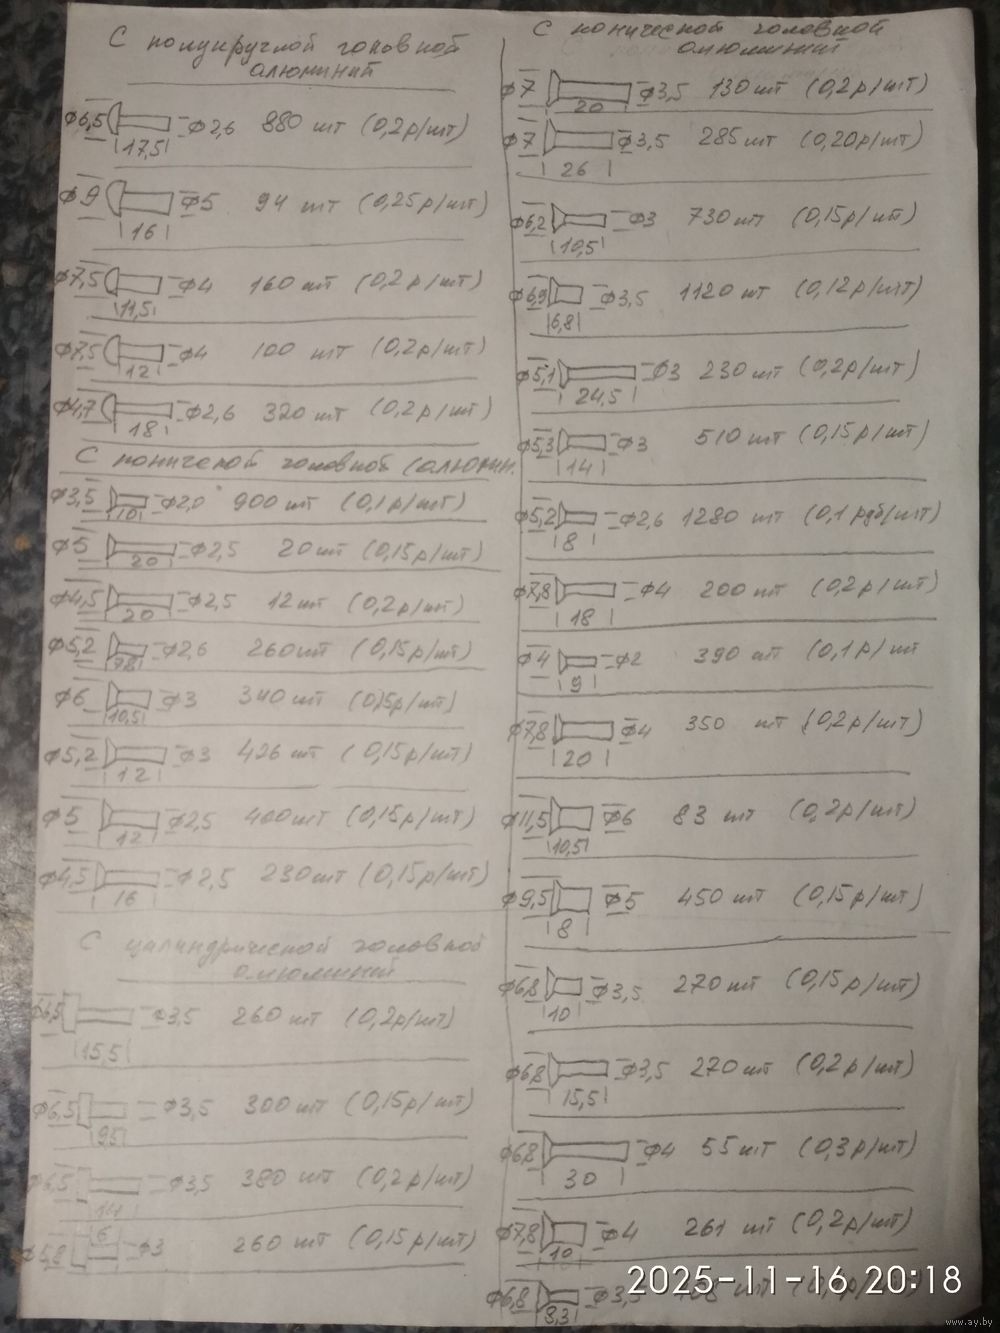 С полукруглой головкой
алюминий
ф6,5 17,5 ф2,6 880 шт (0,2р/шт)
ф9 16 ф5 94 шт (0,25р/шт)
ф7,5 11,5 ф4 160 шт (0,2р/шт)
ф7,5 12 ф4 100 шт (0,2р/шт)
ф4,7 18 ф2,6 320 шт (0,2р/шт)
С конической головкой (алюмин.
ф3,5 10 ф2,0 900 шт (0,1р/шт)
ф5 20 ф2,5 20шт (0,15р/шт)
ф4,5 20 ф2,5 12шт (0,2р/шт)
ф5,2 ф2,6 260шт (0,15р/шт)
ф6 10,5 ф3 340 шт (0,15р/шт)
ф5,2 12 ф3 426 шт (0,15р/шт)
ф5 12 ф2,5 400шт (0,15р/шт)
ф4,5 16 ф2,5 230шт (0,15р/шт)
С цилиндрической головкой
алюминий
ф6,5 15,5 ф3,5 260 шт (0,2р/шт)
ф6,5 9,5 ф3,5 300 шт (0,15р/шт)
ф6,5 14 ф3,5 380 шт (0,2р/шт)
ф5,8 6 ф3 260 шт (0,15р/шт)
С конической головкой
алюминий
ф7 20 ф3,5 130 шт (0,2р/шт)
ф7 26 ф3,5 285шт (0,20р/шт)
ф6,2 10,5 ф3 730шт (0,15р/шт)
ф6,9 6,8 ф3,5 1120 шт (0,12р/шт)
ф5,1 24,5 ф3 230 шт (0,2р/шт)
ф5,3 14 ф3 510 шт (0,15р/шт)
ф5,2 8 ф2,6 1280 шт (0,1 руб/шт)
ф7,8 18 ф4 200 шт (0,2р/шт)
ф4 9 ф2 390 шт (0,1р/шт
ф7,8 20 ф4 350 шт (0,2р/шт)
ф11,5 10,5 ф6 83 шт (0,2р/шт)
ф9,5 8 ф5 450 шт (0,15р/шт)
ф6,8 10 ф3,5 270 шт (0,15р/шт)
ф6,8 15,5 ф3,5 270 шт (0,2р/шт)
ф6,8 30 ф4 55 шт (0,3р/шт)
ф7,8 10 ф4 261 шт (0,2р/шт)
ф6,8 8,3 ф3,5
2025-11-16 20:18
www.ay.by